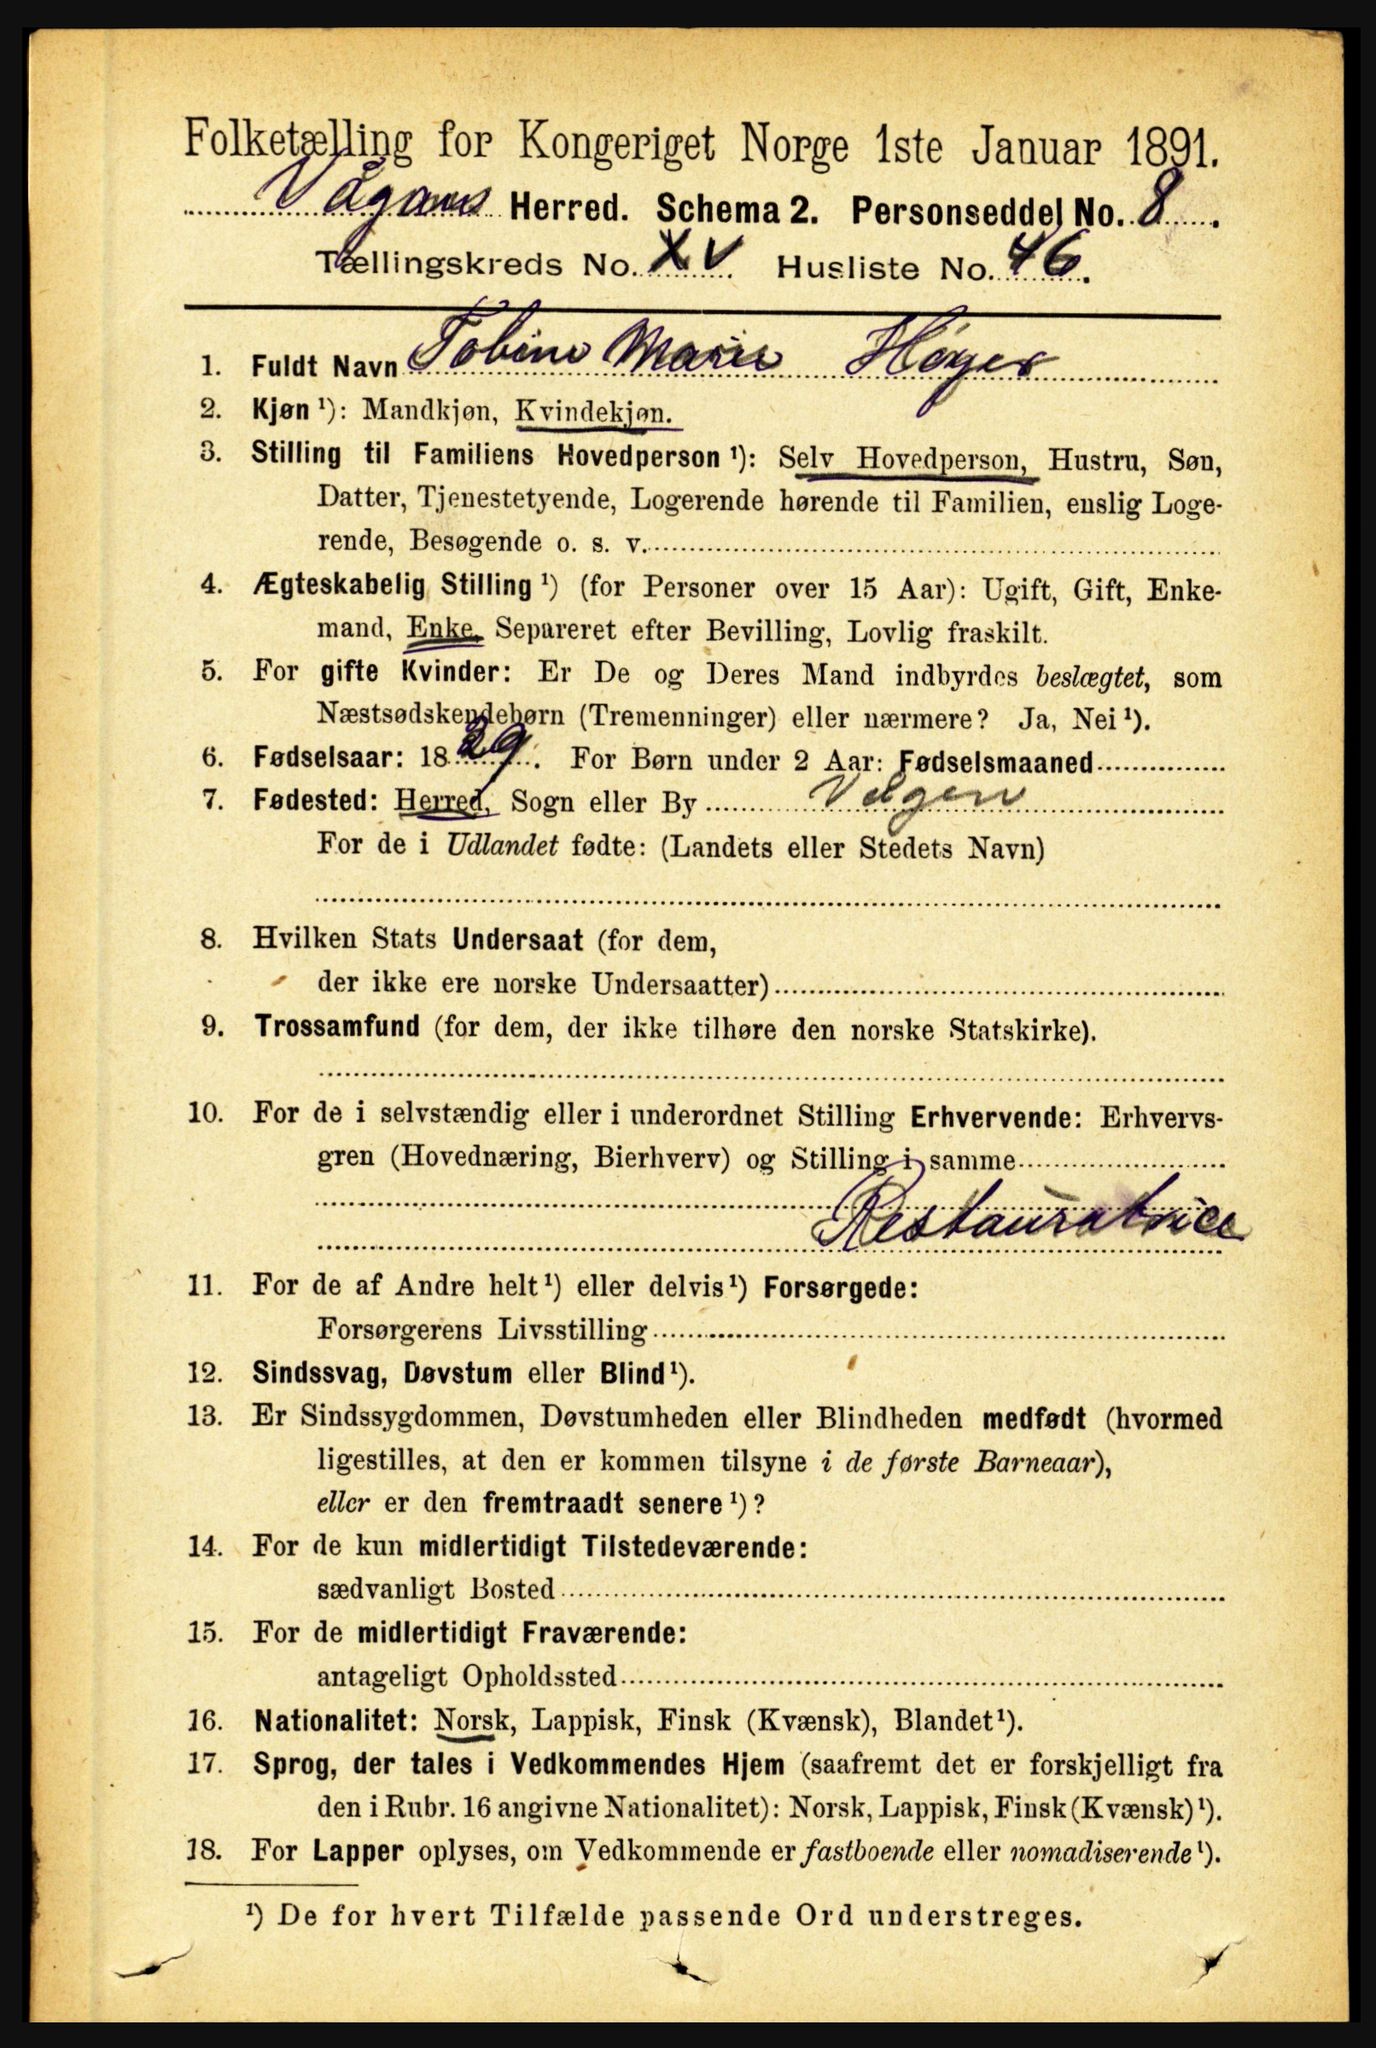 Folketælling for Kongeriget Norge 1ste Januar 1891.
Vågans Herred. Schema 2. Personseddel No. 8.
Tællingskreds No. XV Husliste No. 46.
1. Fuldt Navn Tobine Marie Høyer
2. Kjøn ¹): Mandkjøn, Kvindekjøn.
3. Stilling til Familiens Hovedperson ¹): Selv Hovedperson, Hustru, Søn,
Datter, Tjenestetyende, Logerende hørende til Familien, enslig Loge-
rende, Besøgende o. s. v.
4. Ægteskabelig Stilling ¹) (for Personer over 15 Aar): Ugift, Gift, Enke-
mand, Enke, Separeret efter Bevilling, Lovlig fraskilt.
5. For gifte Kvinder: Er De og Deres Mand indbyrdes beslægtet, som
Næstsødskendebørn (Tremenninger) eller nærmere? Ja, Nei ¹).
6. Fødselsaar: 1839. For Børn under 2 Aar: Fødselsmaaned
7. Fødested: Herred, Sogn eller By
For de i Udlandet fødte: (Landets eller Stedets Navn)
8. Hvilken Stats Undersaat (for dem,
der ikke ere norske Undersaatter)
9. Trossamfund (for dem, der ikke tilhøre den norske Statskirke).
10. For de i selvstændig eller i underordnet Stilling Erhvervende: Erhvervs-
gren (Hovednæring, Bierhverv) og Stilling i samme
Restauratrice
11. For de af Andre helt ¹) eller delvis ¹) Forsørgede:
Forsørgerens Livsstilling
12. Sindssvag, Døvstum eller Blind ¹).
13. Er Sindssygdommen, Døvstumheden eller Blindheden medfødt (hvormed
ligestilles, at den er kommen tilsyne i de første Barneaar),
eller er den fremtraadt senere ¹)?
14. For de kun midlertidigt Tilstedeværende:
sædvanligt Bosted
15. For de midlertidigt Fraværende:
antageligt Opholdssted
16. Nationalitet: Norsk, Lappisk, Finsk (Kvænsk), Blandet ¹).
17. Sprog, der tales i Vedkommendes Hjem (saafremt det er forskjelligt fra
den i Rubr. 16 angivne Nationalitet): Norsk, Lappisk, Finsk (Kvænsk) ¹).
18. For Lapper oplyses, om Vedkommende er fastboende eller nomadiserende ¹).
¹) De for hvert Tilfælde passende Ord understreges.